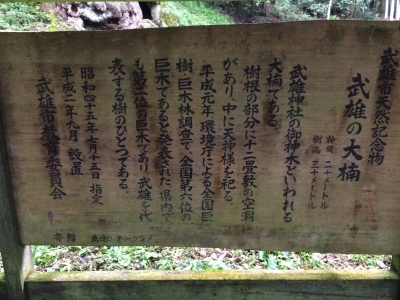 武雄市天然記念物
武雄の大楠
幹周 二十メートル
樹高 三十メートル
武雄神社の御神木といわれる
大楠である。
樹根の部分に十二畳敷の空洞
があり、中に天神様を祀る。
平成元年環境庁による全国巨
樹・巨木林調査で、全国第六位の
巨木であると発表された。県内で
も第二位の巨木であり、武雄を代
表する樹のひとつである。
昭和四十五年七月十五日 指定
平成二年九月 設置
武雄市教育委員会
寄贈